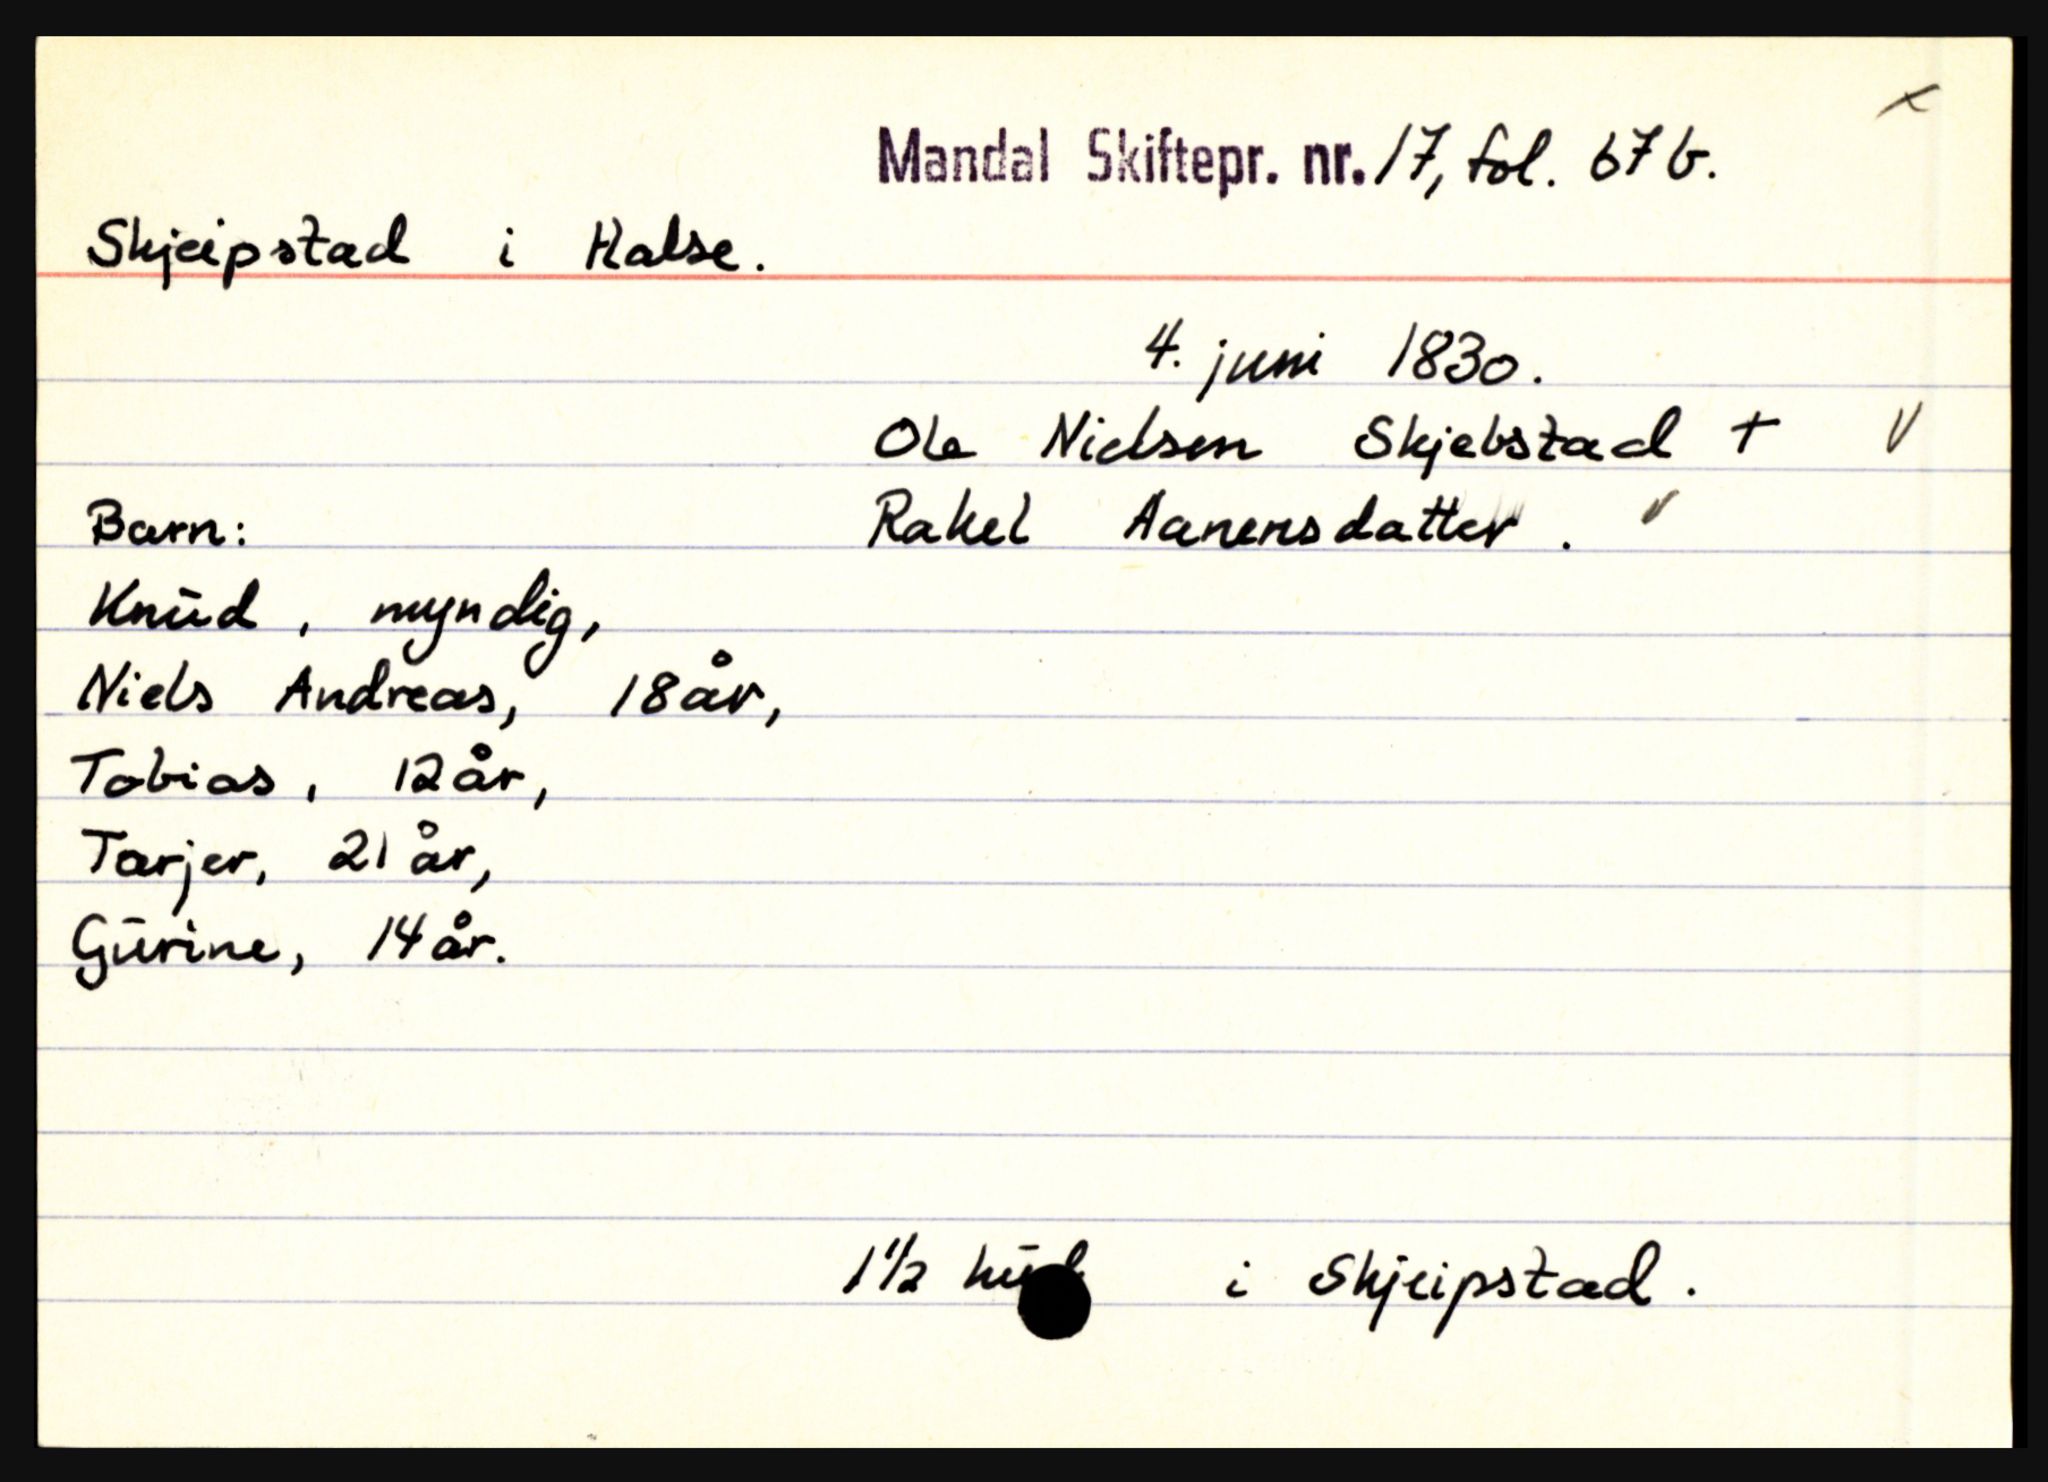 x
Mandal Skiftepr. nr. 17, fol. 67 b.
Skjeipstad i Halse.
4. juni 1830.
Ole Nielsen Skjebstad + v
Barn: Rakel Aanensdatter. v
Knud, myndig,
Niels Andreas, 18 år,
Tobias, 12 år,
Tarjer, 21 år,
Gurine, 14 år.
1 1/2 hud i Skjeipstad.